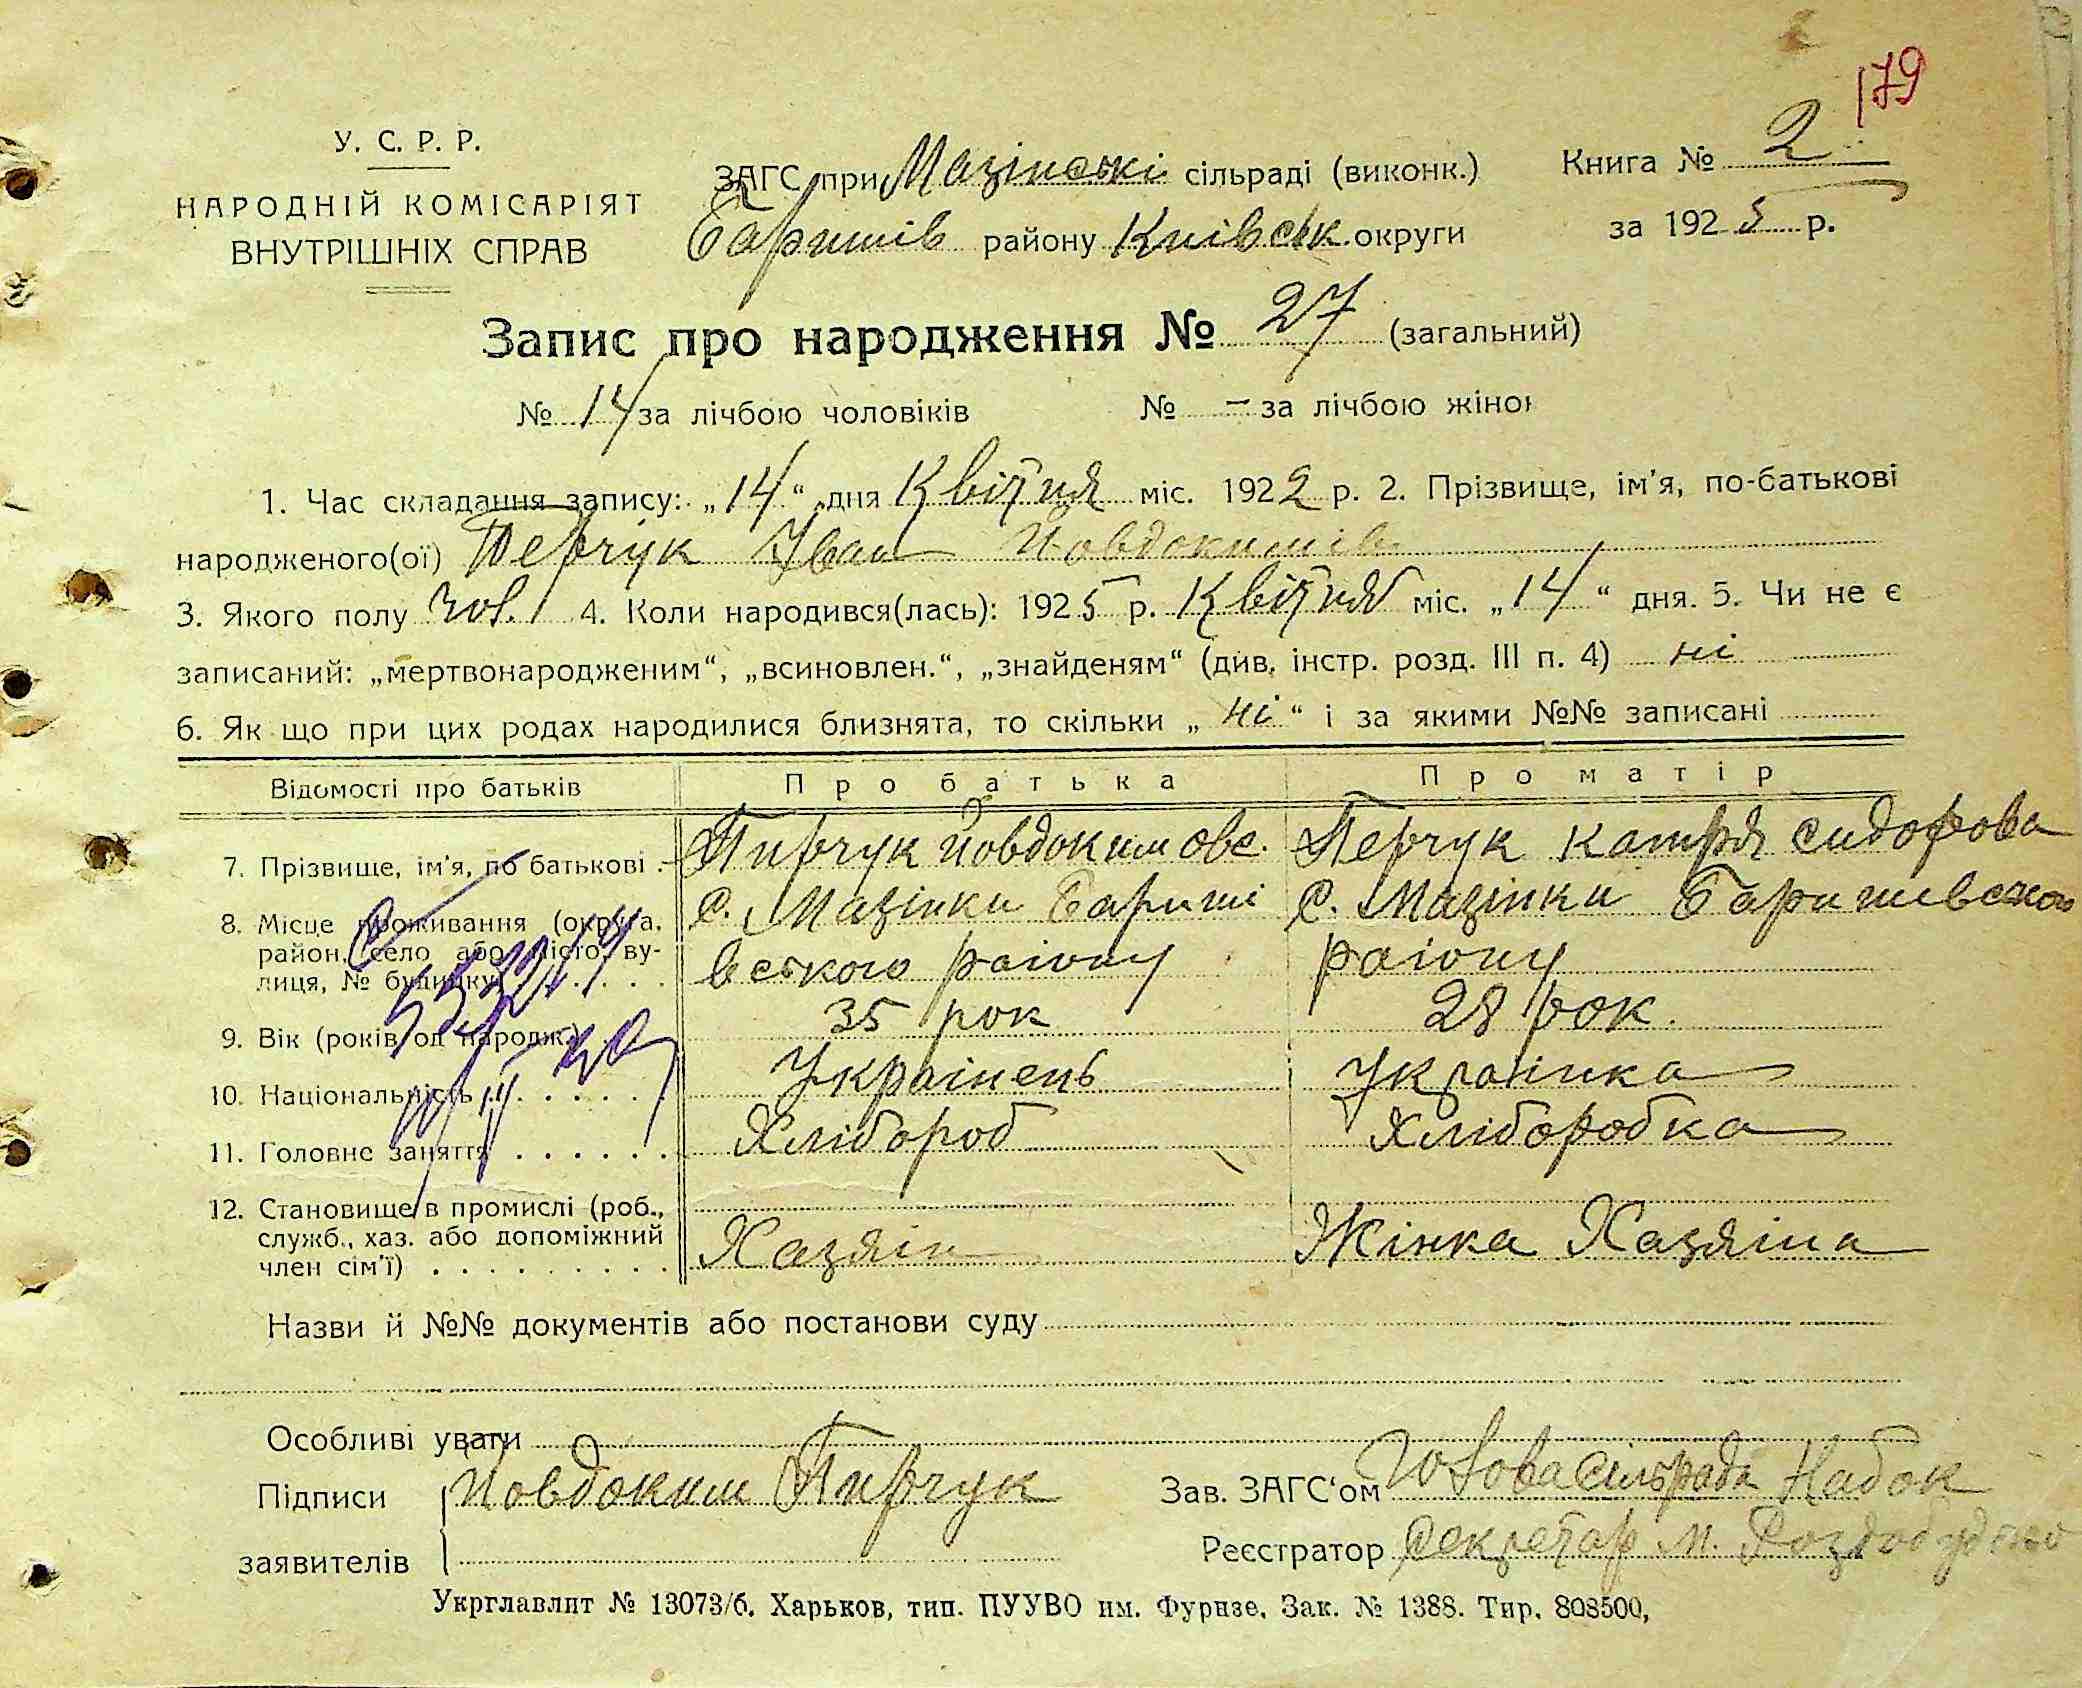 179
У. С. Р. Р.
НАРОДНІЙ КОМІСАРІЯТ
ВНУТРІШНІХ СПРАВ
ЗАГС при Мазінські сільраді (виконк.)
Баришів району Київськ. округи
Книга № 2
за 1925 р.
Запис про народження № 27 (загальний)
№ 14 за лічбою чоловіків № – за лічбою жінок
1. Час складання запису: „14“ дня Квітня міс. 1922 р. 2. Прізвище, ім'я, по-батькові
народженого(ої) Перчук Іван Йовдокимів
3. Якого полу чол. 4. Коли народився(лась): 1925 р. Квітня міс. „14“ дня. 5. Чи не є
записаний: „мертвонародженим“, „всиновлен.“, „знайденям“ (див. інстр. розд. III п. 4) ні
6. Як що при цих родах народилися близнята, то скільки „ні“ і за якими №№ записані
Відомості про батьків Про батька Про матір
7. Прізвище, ім'я, по батькові . Пирчук Йовдоким Овс. Перчук Катря Сидорова
8. Місце проживання (округа, район, село або місто, вулиця, № будинку) с. Мазінки Баришівського раіону с. Мазінки Баришевського раіону
9. Вік (років од народж.) 35 рок 28 рок.
10. Національність Украінець Украінка
11. Головне заняття Хлібороб Хліборобка
12. Становище в промислі (роб., служб., хаз. або допоміжний член сім'ї) Хазяін Жінка Хазяіна
Назви й №№ документів або постанови суду
Особливі уваги
Підписи заявителів Йовдоким Пирчук
Зав. ЗАГС'ом Голова сільрада Набок
Реєстратор Секретар М.
Укрглавлит № 13073/б. Харьков, тип. ПУУВО им. Фрунзе. Зак. № 1388. Тир. 808500,